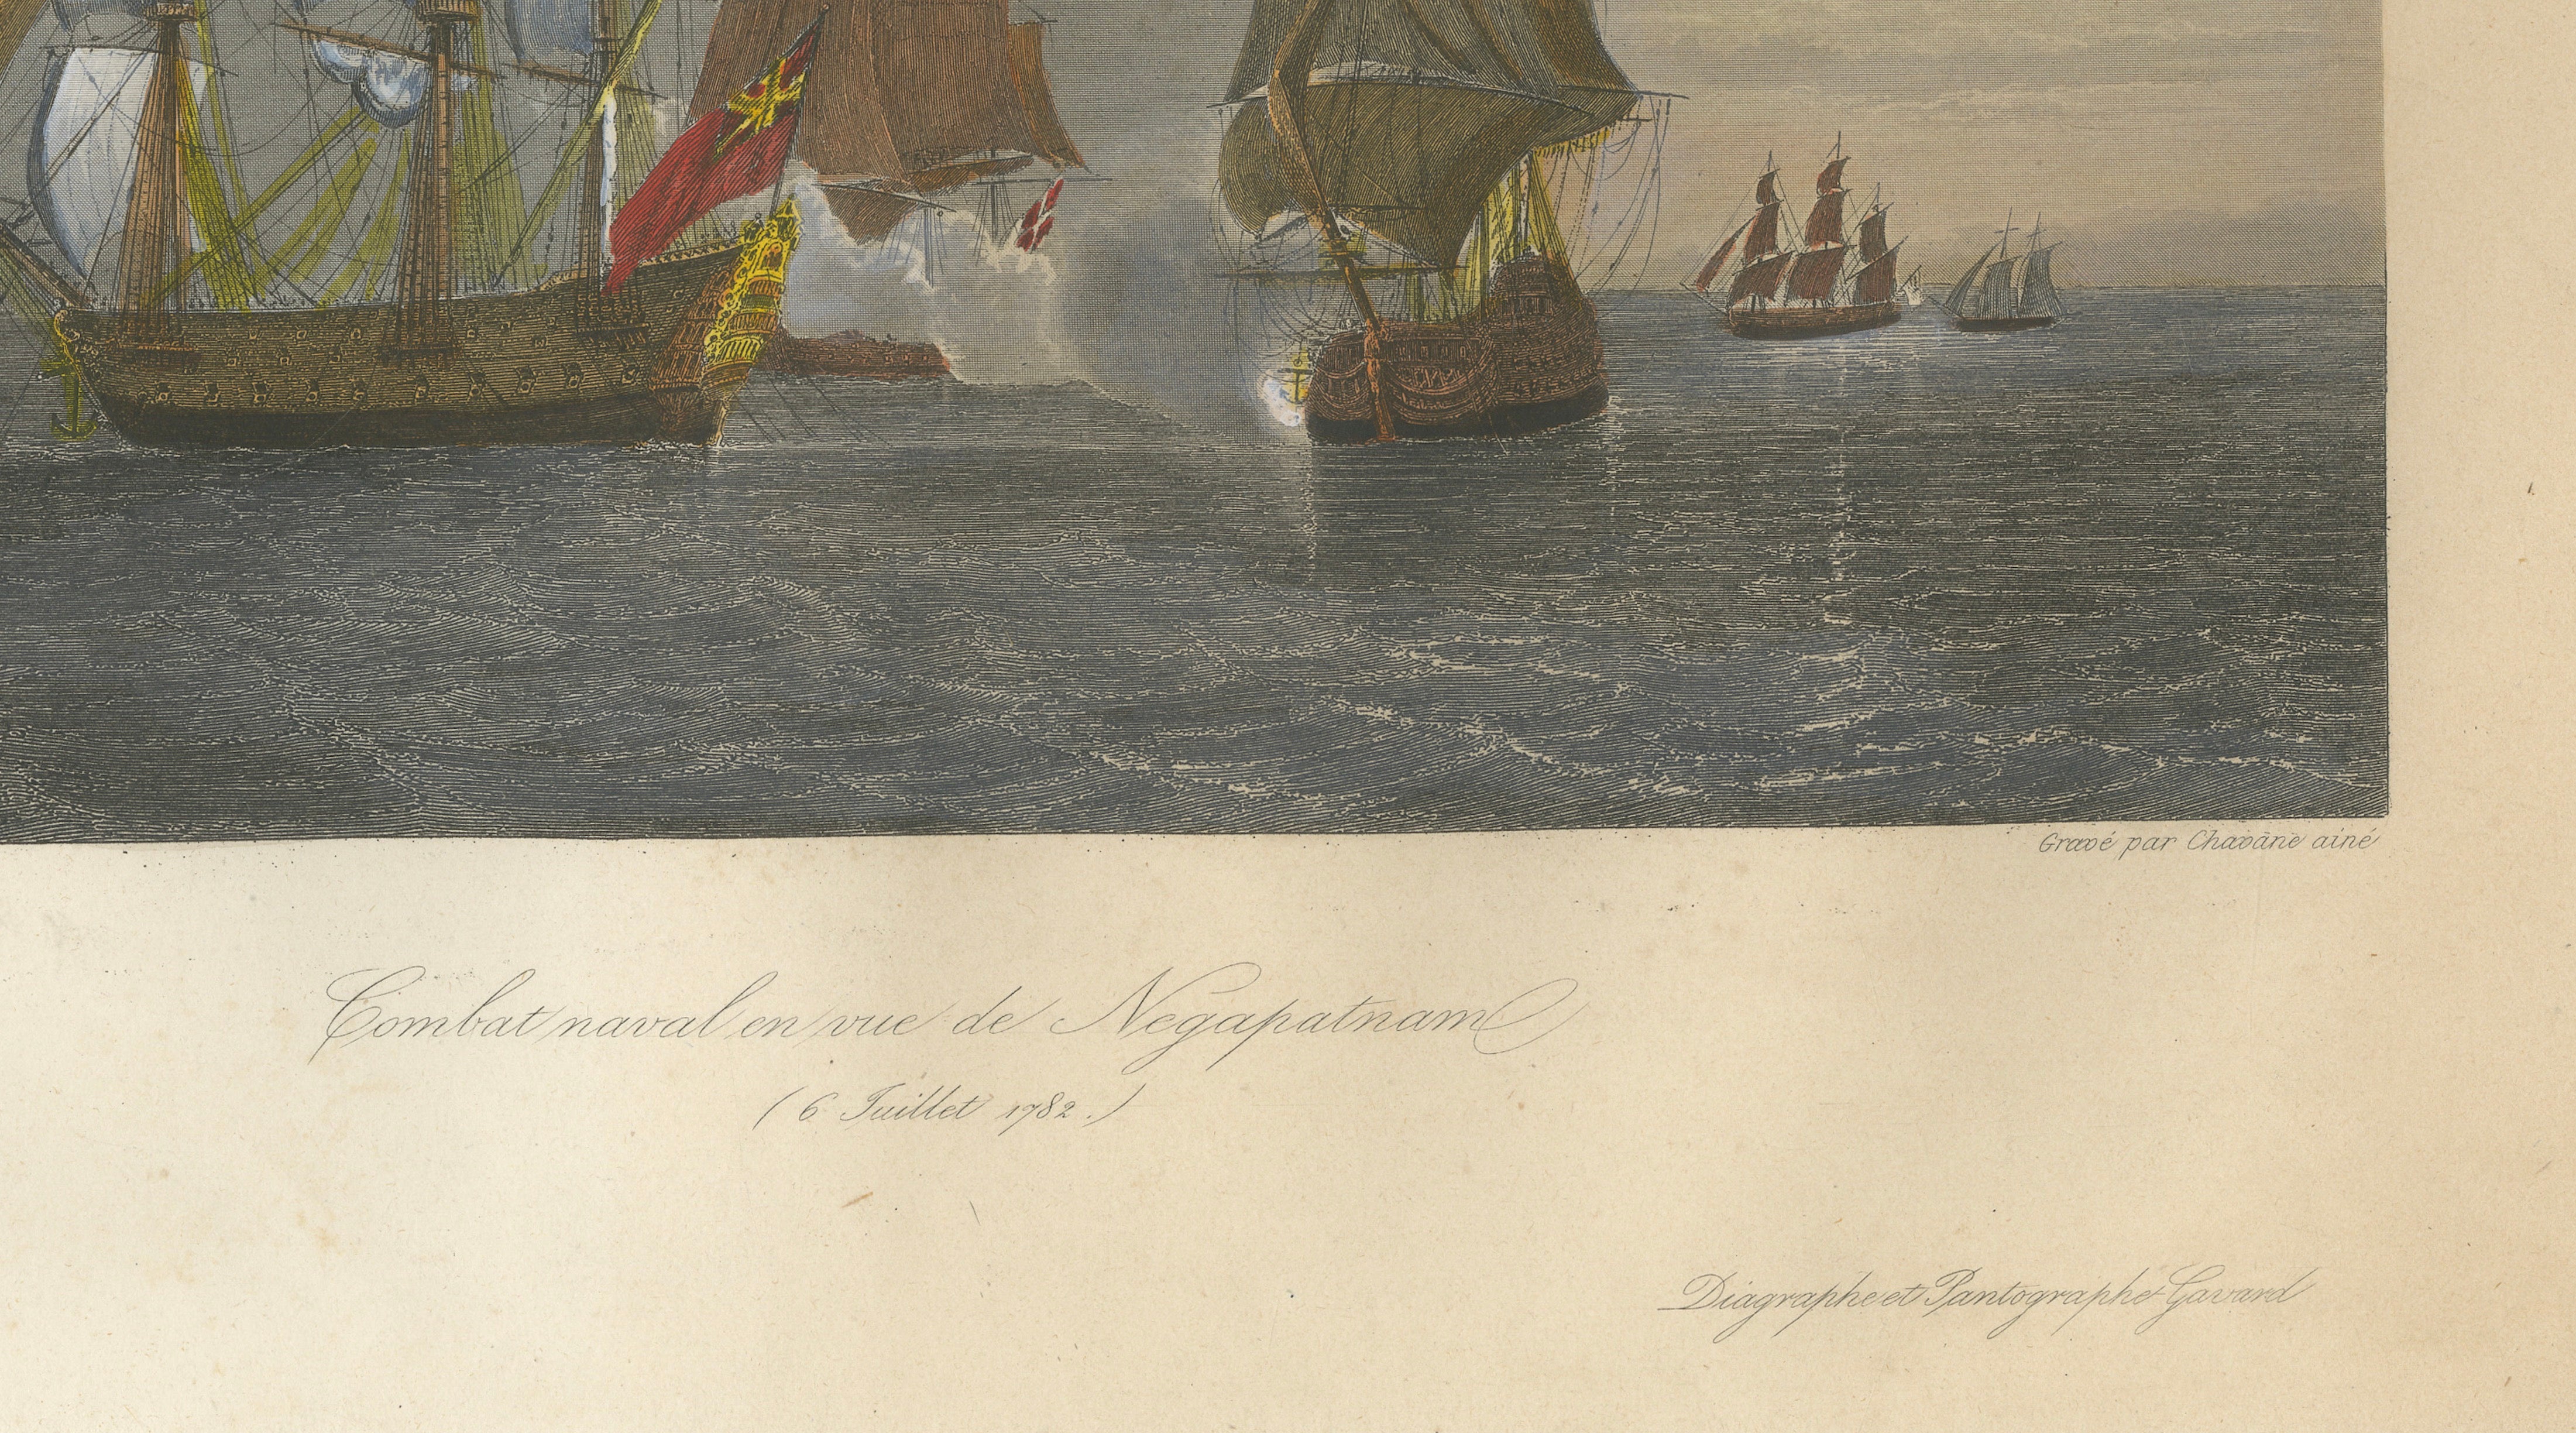 Gravé par Chavane ainé
Combat naval en vue de Negapatnam
(6 Juillet 1782.)
Diagraphe et Pantographe Gavard